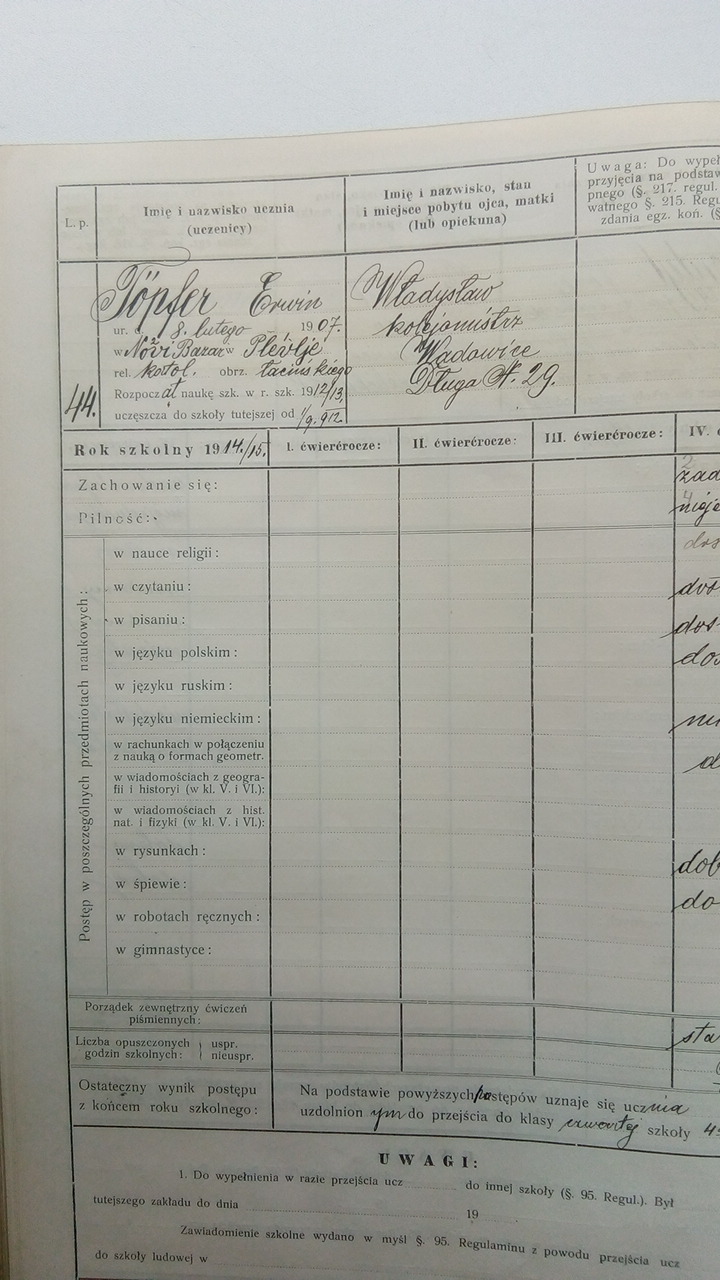 L. p.
Imię i nazwisko ucznia
(uczenicy)
Imię i nazwisko, stan
i miejsce pobytu ojca, matki
(lub opiekuna)
Uwaga: Do wypeł
przyjęcia na podstaw
pnego (§. 217. regul.
watnego §. 215. Regu
zdania egz. koń. (§
44.
Töpfer Erwin
ur. d. 8. lutego 1907.
w Novi Bazar w Plevlje
rel. katol. obrz. łacińskiego
Rozpoczął naukę szk. w r. szk. 1912/13,
uczęszcza do szkoły tutejszej od 1/9. 912.
Władysław
kolejomistrz
Wadowice
Długa N. 29.
Rok szkolny 1914/15.
I. ćwierćrocze:
II. ćwierćrocze:
III. ćwierćrocze:
IV. ć
Zachowanie się:
2
zad
Pilność:
4
nieje
Postęp w poszczególnych przedmiotach naukowych:
w nauce religii:
dos
w czytaniu:
dos
w pisaniu:
dos
w języku polskim:
dos
w języku ruskim:
w języku niemieckim:
w rachunkach w połączeniu
z nauką o formach geometr.
d
w wiadomościach z geogra-
fii i historyi (w kl. V. i VI.):
w wiadomościach z hist.
nat. i fizyki (w kl. V. i VI.):
w rysunkach:
dob
w śpiewie:
do
w robotach ręcznych:
w gimnastyce:
Porządek zewnętrzny ćwiczeń
piśmiennych:
sta
Liczba opuszczonych
godzin szkolnych:
uspr.
nieuspr.
Ostateczny wynik postępu
z końcem roku szkolnego:
Na podstawie powyższych postępów uznaje się ucznia
uzdolnionym do przejścia do klasy czwartej szkoły 4
UWAGI:
1. Do wypełnienia w razie przejścia ucz do innej szkoły (§. 95. Regul.). Był
tutejszego zakładu do dnia 19
Zawiadomienie szkolne wydano w myśl §. 95. Regulaminu z powodu przejścia ucz
do szkoły ludowej w